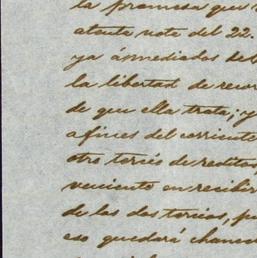 la promesa que
atenta note del 22.
ya ámediados del
la libertad de recor
de que ella trata; y
afines del corriente
otro tercio de reditos,
veniente en recibir
de los dos tercios, pu
eso quedará chance